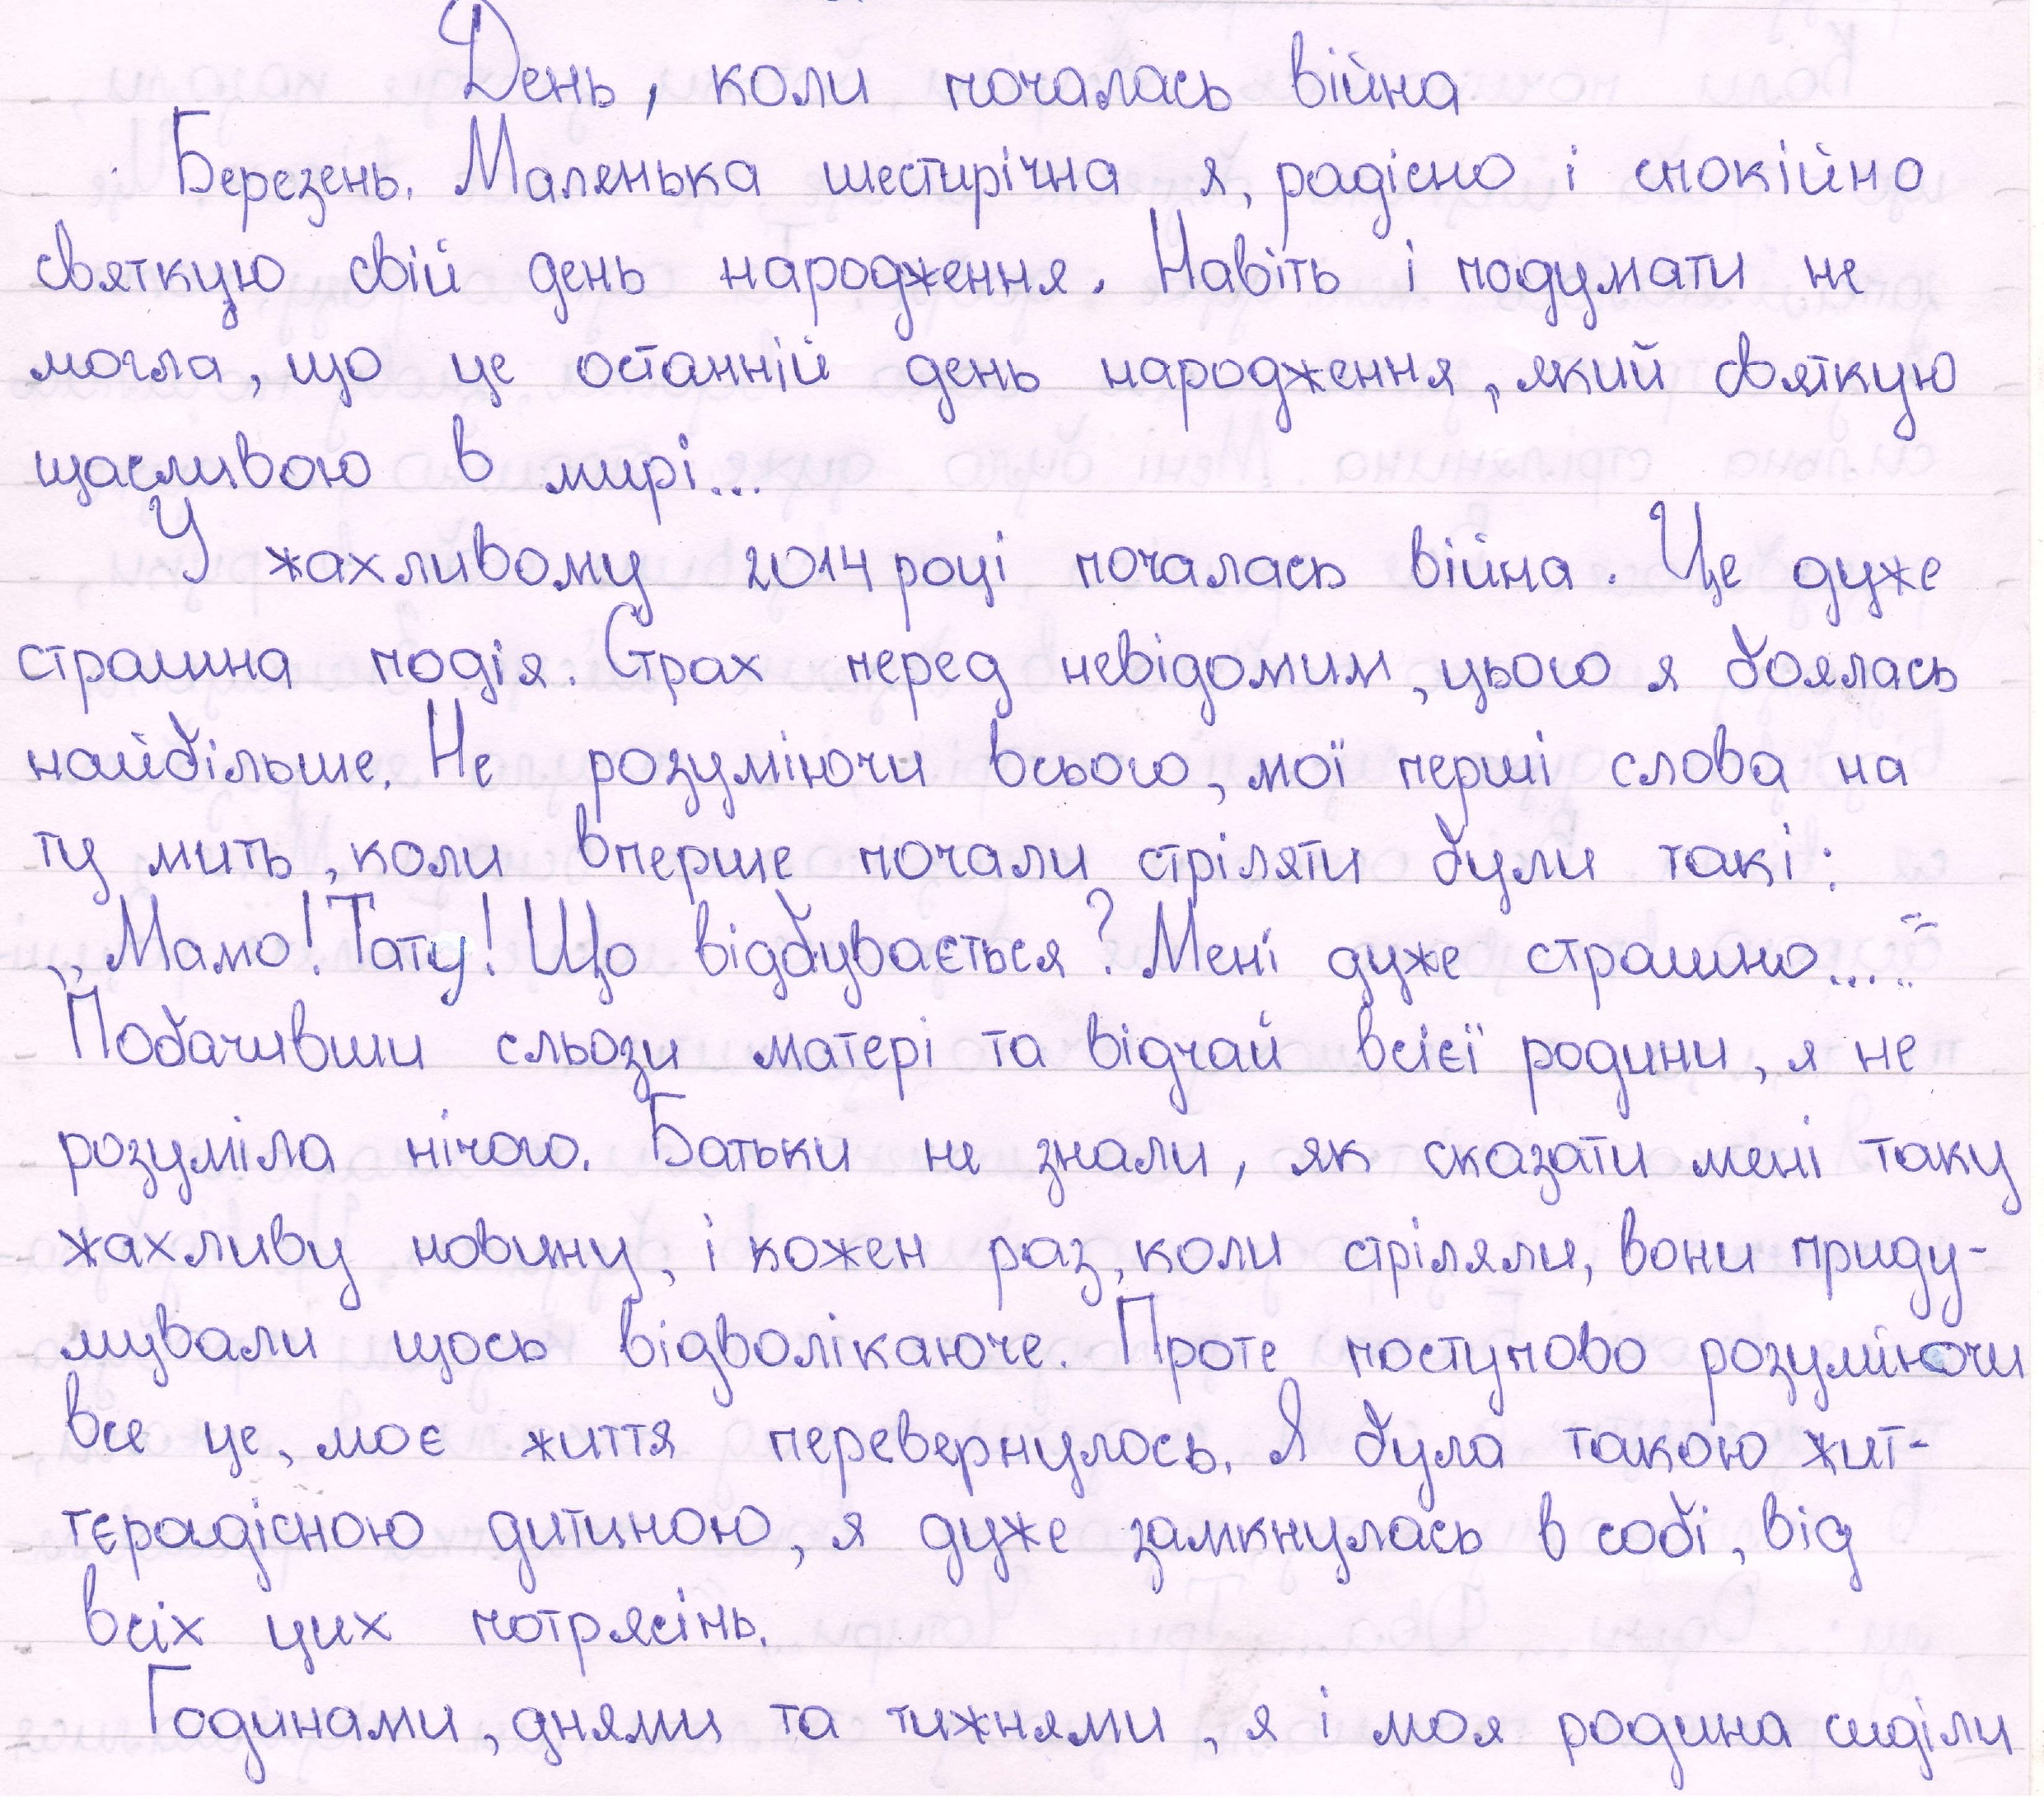 День, коли почалась війна
Березень. Маленька шестирічна я, радісно і спокійно
святкую свій день народження. Навіть і подумати не
могла, що це останній день народження, який святкую
щасливою в мирі...
У жахливому 2014 році почалась війна. Це дуже
страшна подія. Страх перед невідомим, цього я боялась
найбільше. Не розуміючи всього, мої перші слова на
ту мить, коли вперше почали стріляти були такі:
„Мамо! Тату! Що відбувається? Мені дуже страшно...."
Побачивши сльози матері та відчай всієї родини, я не
розуміла нічого. Батьки не знали, як сказати мені таку
жахливу новину, і кожен раз, коли стріляли, вони приду-
мували щось відволікаюче. Проте поступово розуміючи
все це, моє життя перевернулось. Я була такою жит-
тєрадісною дитиною, я дуже замкнулась в собі, від
всіх цих потрясінь.
Годинами, днями та тижнями, я і моя родина сиділи